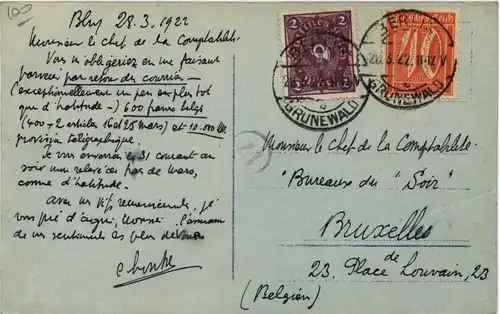 Bln, 28.3.1922
Monsieur le chef de la Comptabilité
Vous m'obligeriez en me faisant
parvenir par retour du courrier
(exceptionnellement un peu plus tôt
que d'habitude) 600 francs belges
(400 + 2 articles 16 et 25 mars) et 10.000 de
provision télégraphique.
Je vous enverrai le 31 courant au
soir mon relevé de mars,
comme d'habitude.
Avec mes remerciements, je
vous prie d'agréer, Monsieur, l'assurance
de mes sentiments les plus dévoués
2
2
GRUNEWALD
BERLIN
10
GRUNEWALD
Monsieur le chef de la Comptabilité
"Bureaux du "Soir"
Bruxelles
23, Place de Louvain, 23
(Belgien)